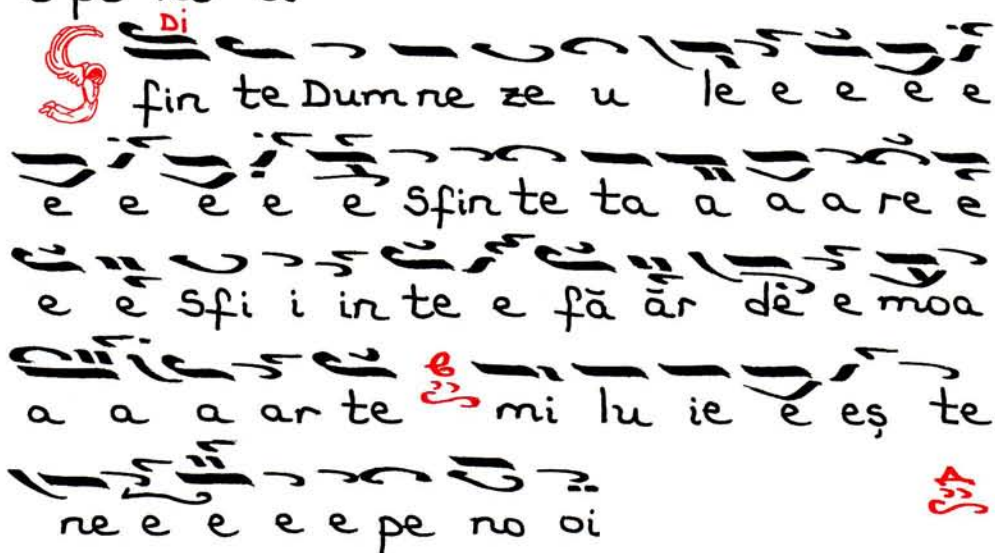 Di
Sfin te Dum ne ze u le e e e e
e e e e e Sfin te ta a a a re e
e e Sfi i in te e fă ăr de e moa
a a a ar te mi lu ie e eș te
ne e e e e pe no oi